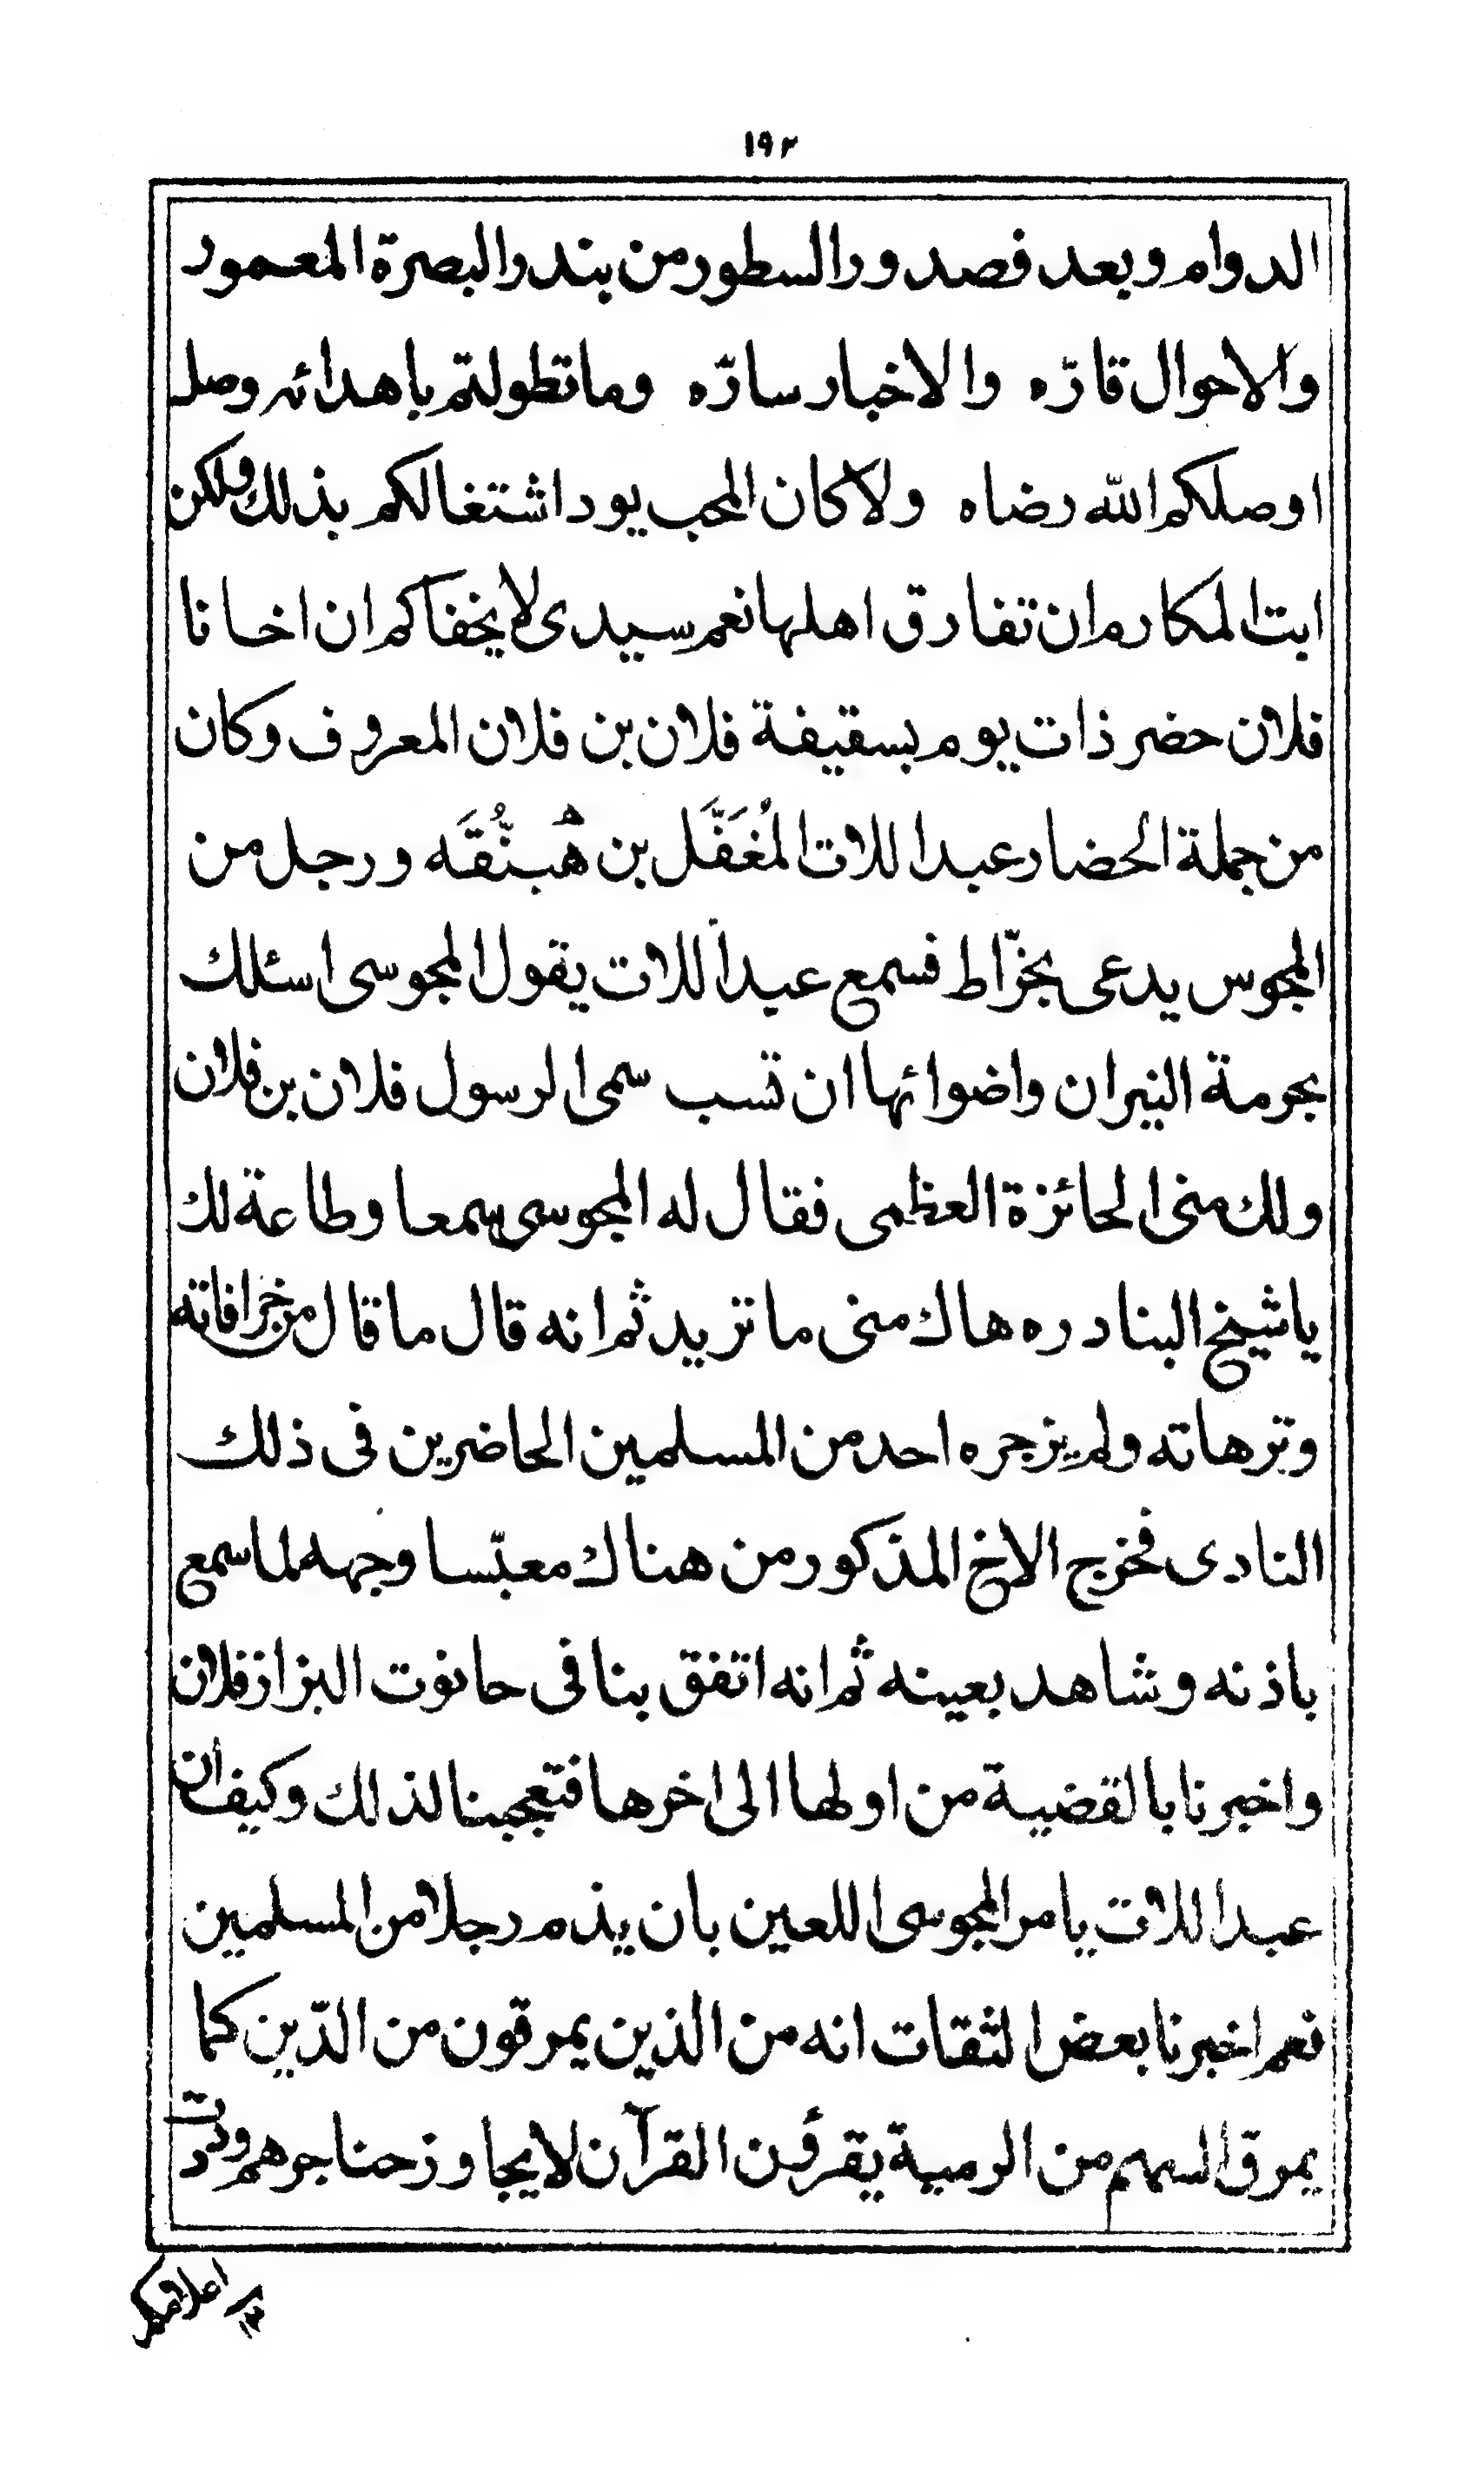 ١٩٢
الدوام وبعد فصدور السطور من بندر البصرة المعمور
والاحوال قارّه والاخبار سارّه وما تطولتم باهدائه وصل
اوصلكم الله رضاه ولا كان المحب يود اشتغالكم بذلك ولكن
ابت المكارم ان تفارق اهلها نعم سيدى لا يخفاكم ان اخانا
فلان حضر ذات يوم بسقيفة فلان بن فلان المعروف وكان
من جملة الحضار عبد اللات المُغَفَّل بن هُبنَّقَه ورجل من
المجوس يدعى بخرّاط فسمع عبد اللات يقول المجوسى اسئلك
بحرمة النيران واضوائها ان تسب سمى الرسول فلان بن فلان
ولك منى الجائزة العظمى فقال له المجوسى سمعا وطاعة لك
يا شيخ البنادره هاك منى ما تريد ثم انه قال ما قال من خرافاته
وترهاته ولم يزجره احد من المسلمين الحاضرين فى ذلك
النادى فخرج الاخ المذكور من هناك معبّسا وجهه لما سمع
باذنه وشاهد بعينه ثم انه اتفق بنا فى حانوت البزاز فلان
واخبرنا بالقضية من اولها الى اخرها فتعجبنا لذلك وكيف ان
عبد اللات يامر المجوسى اللعين بان يذم رجلا من المسلمين
نعم اخبرنا بعض الثقات انه من الذين يمرقون من الدّين كما
يمرق السهم من الرمية يقرؤن القرآن لا يجاوز حناجرهم وردت